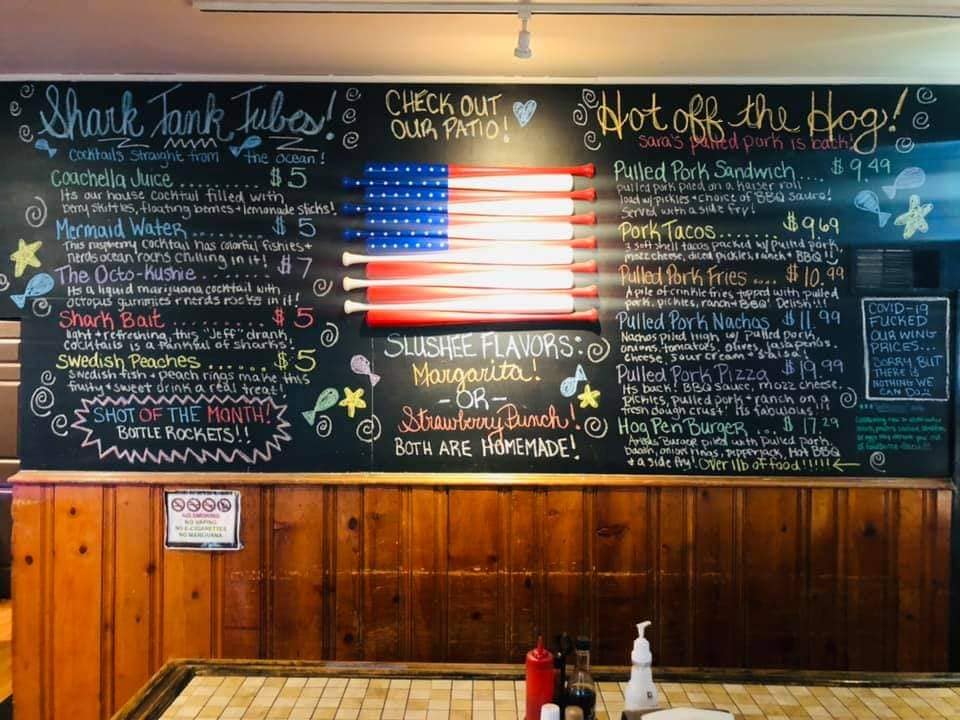 Shark Tank Tubes!
Cocktails straight from the ocean!
Coachella Juice.... $5
Its our house cocktail filled with
berry skittles, floating berries + lemonade sticks!
Mermaid Water........ $5
This raspberry cocktail has colorful fishies +
nerds ocean rocks chilling in it!
The Octo-Kushie....... $7
Its a liquid marijuana cocktail with
octopus gummies + nerds rocks in it!
Shark Bait........ $5
light + refreshing, this "Jeff" drank
cocktails is a tankful of sharks!
Swedish Peaches........ $5
Swedish fish + peach rings make this
fruity + sweet drink a real treat!
SHOT OF THE MONTH!
BOTTLE ROCKETS!!
CHECK OUT
OUR PATIO!
SLUSHEE FLAVORS:
Margarita!
-OR-
Strawberry Punch!
BOTH ARE HOMEMADE!
Hot off the Hog!
sara's pulled pork is back!
Pulled Pork Sandwich... $9.49
pulled pork piled on a kaiser roll
load w/ pickles + choice of BBQ sauce!
Served with a side fry!
Pork Tacos....... $9.69
3 soft shell tacos packed w/ pulled pork,
mozz cheese, diced pickles, ranch + BBQ!!
Pulled Pork Fries.... $10.99
A pile of crinkle fries topped with pulled
pork, pickles, ranch + BBQ! Delish!!!
Pulled Pork Nachos. $11.99
Nachos piled high w/ pulled pork,
onions, tomatoes, olives, jalapenos,
cheese, sour cream + salsa!
Pulled Pork Pizza $19.99
Its back! BBQ sauce, mozz cheese,
pickles, pulled pork + ranch on a
fresh dough crust! Its fabulous!!!
Hog Pen Burger..... $17.29
Angus Burger piled with pulled pork,
bacon, onion rings, pepperjack, Hot BBQ
+ a side fry! Over 1 lb of food!!!!!
COVID-19
FUCKED
OUR WING
PRICES...
SORRY BUT
THERE IS
NOTHING WE
CAN DO!
NO SMOKING
NO VAPING
NO E-CIGARETTES
NO MARIJUANA